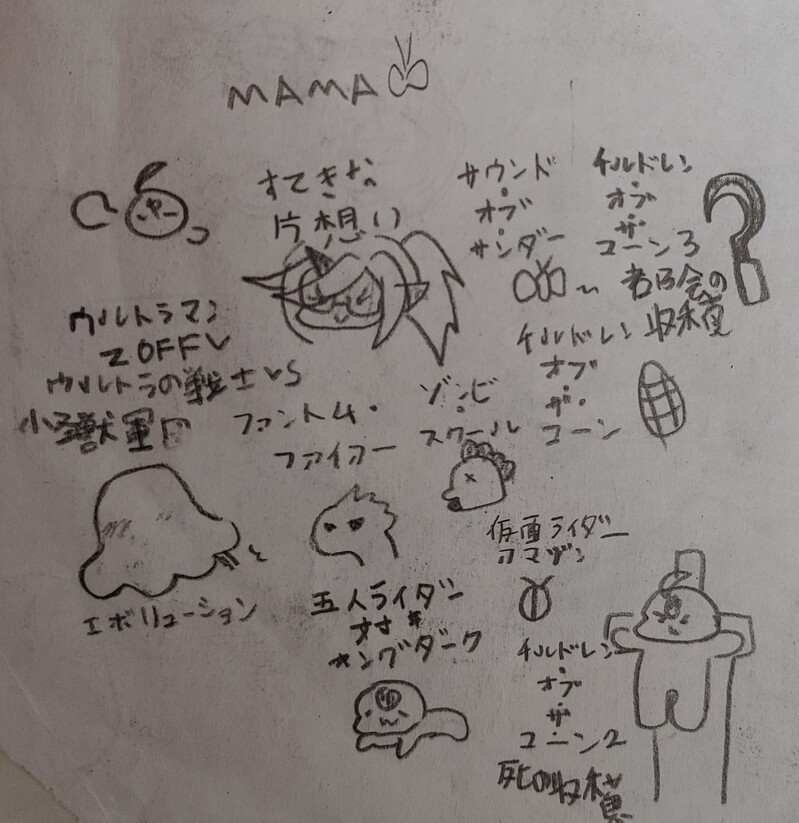 MAMA
すてきな
片想い
サウンド
・
オブ
・
サンダー
チルドレン
・
オブ
・
ザ
・
コーン3
者B会の
収穫
ウルトラマン
ZOFFY
ウルトラの戦士VS
大怪獣軍団
ファントム・
ファイアー
ゾンビ
・
スクール
チルドレン
・
オブ
・
ザ・
コーン
エボリューション
五人ライダー
対
キングダーク
仮面ライダー
アマゾン
チルドレン
・
オブ
・
ザ
・
コーン2
死の収穫